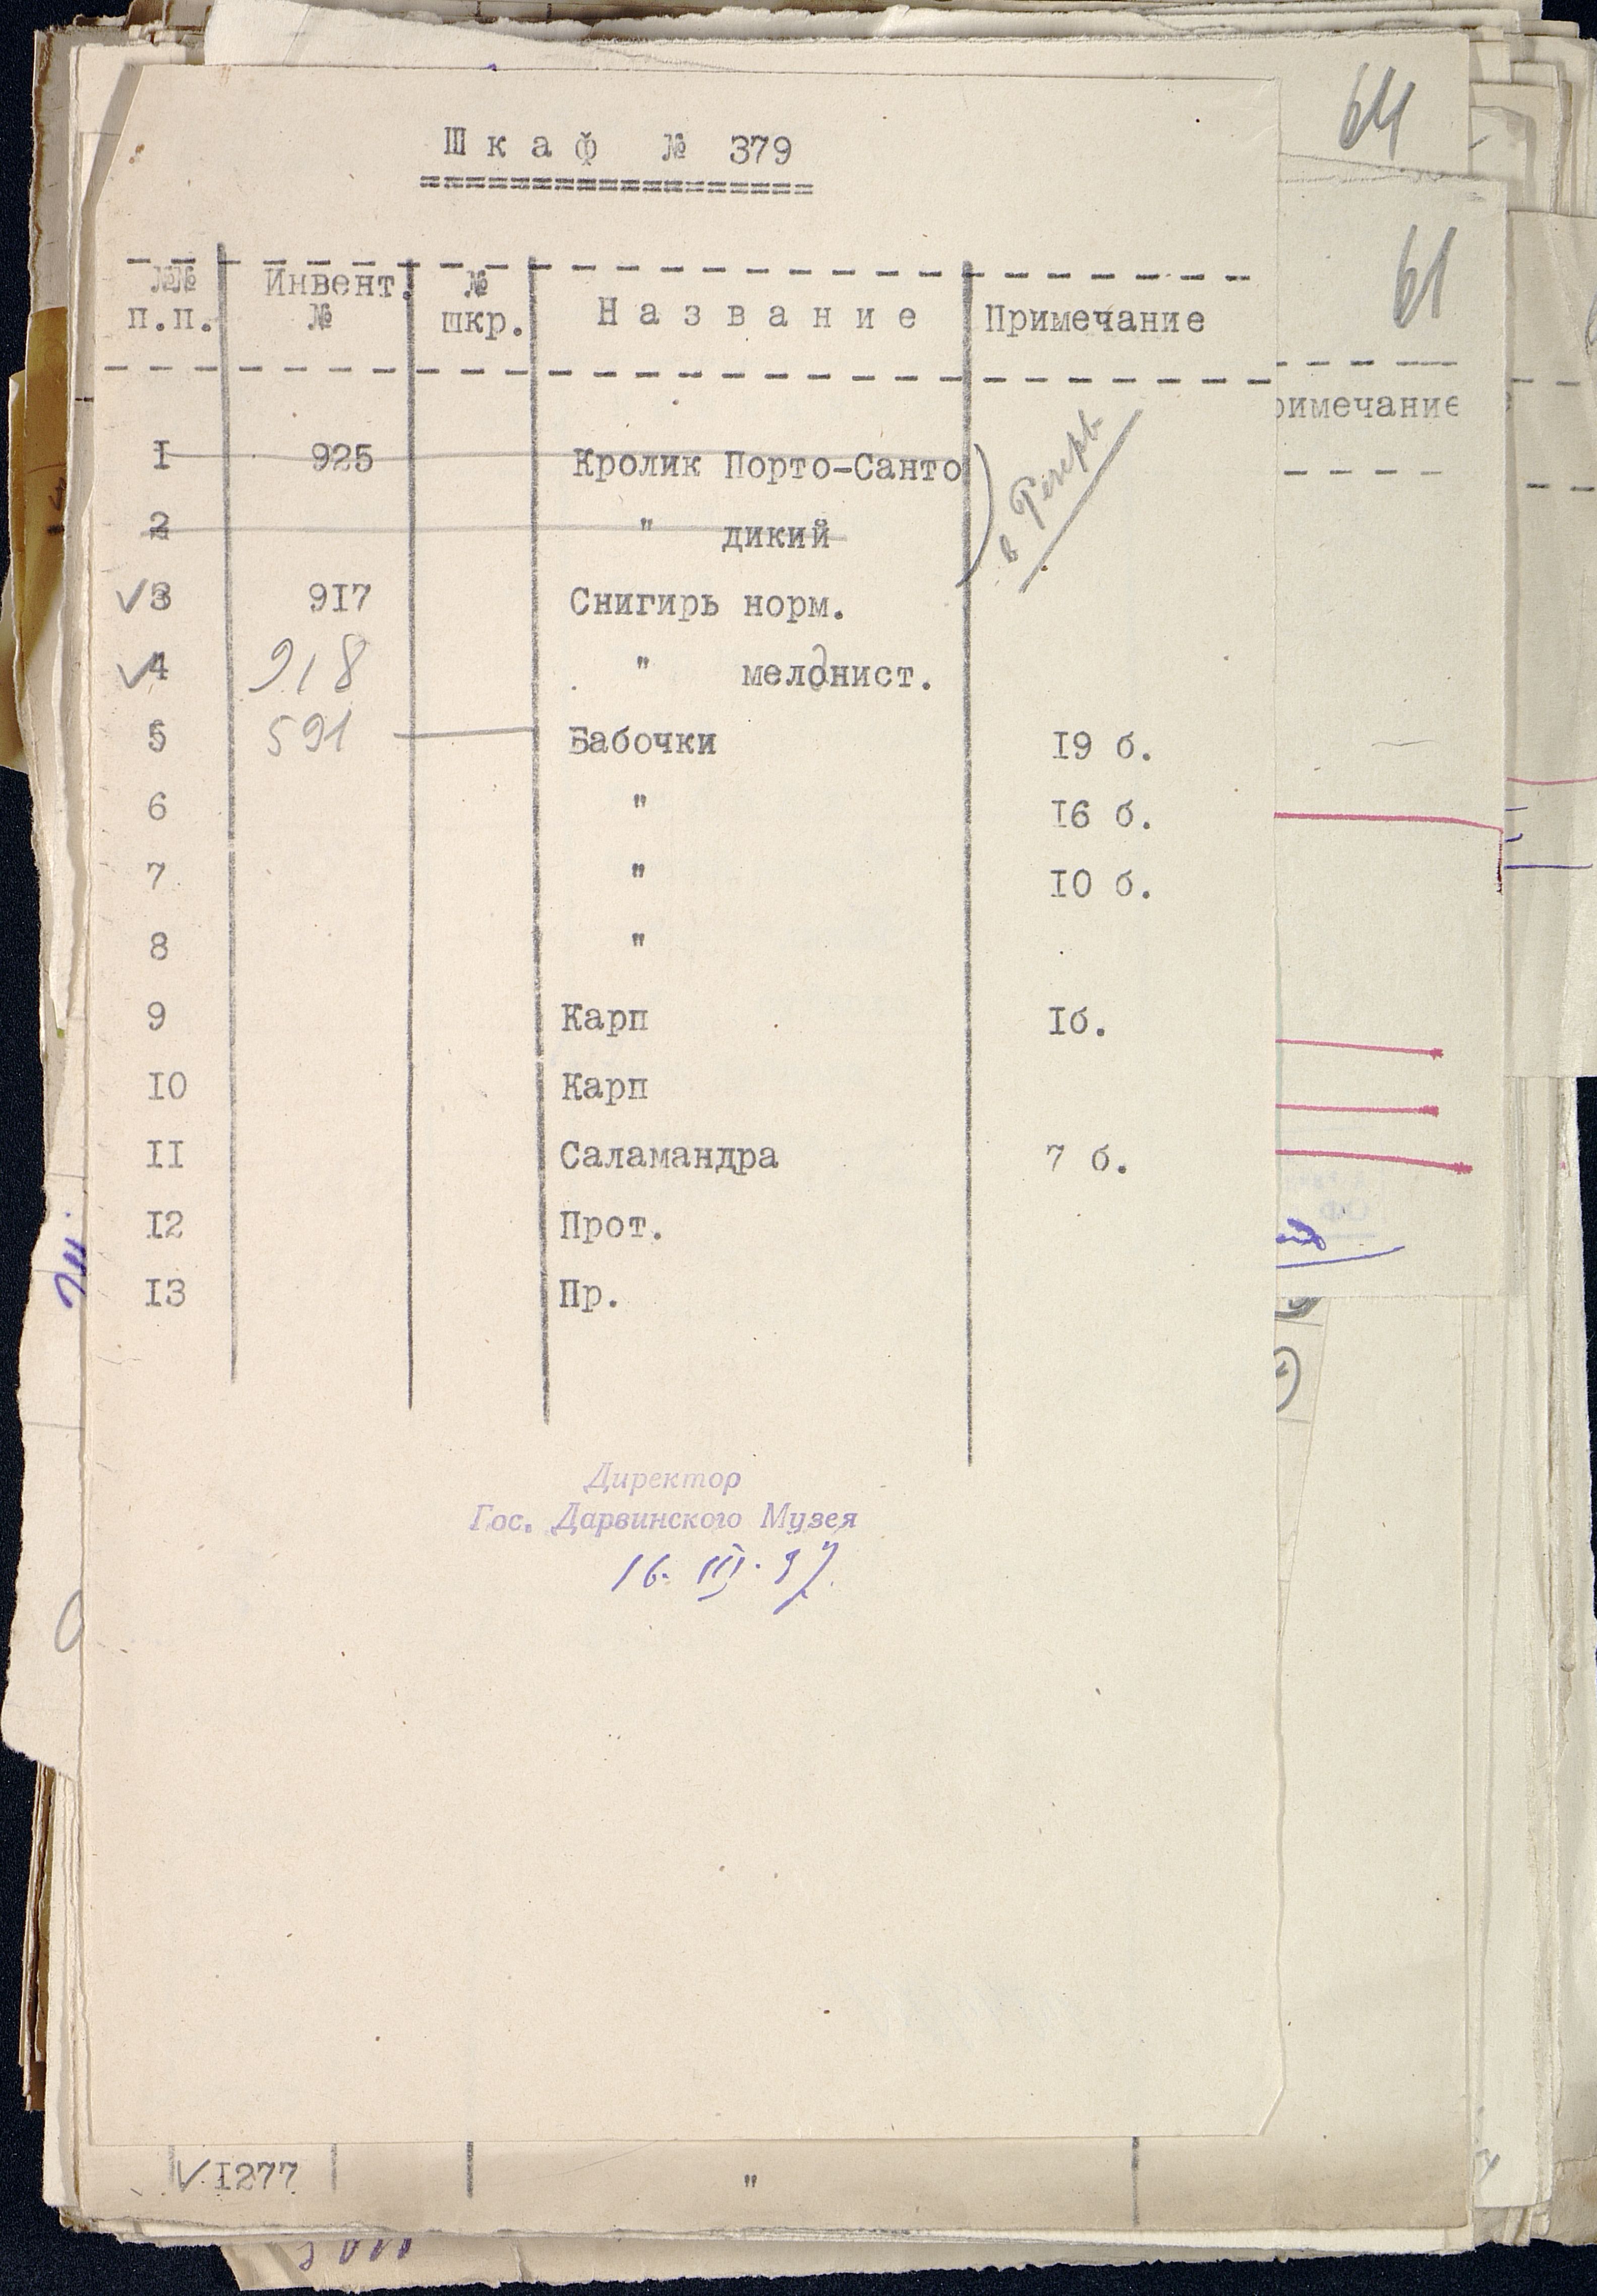 64
61
Шкаф № 379
№№ п.п. Инвент. № № шкр. Название Примечание
римечание
1 925 Кролик Порто-Санто
в Резерв
2 " дикий
3 917 Снигирь норм.
4 918 " меланист.
5 591 Бабочки 19 б.
6 " 16 б.
7 " 10 б.
8 "
9 Карп 1б.
10 Карп
11 Саламандра 7 б.
12 Прот.
13 Пр.
Директор
Гос. Дарвинского Музея
16.III.37.
1277 "